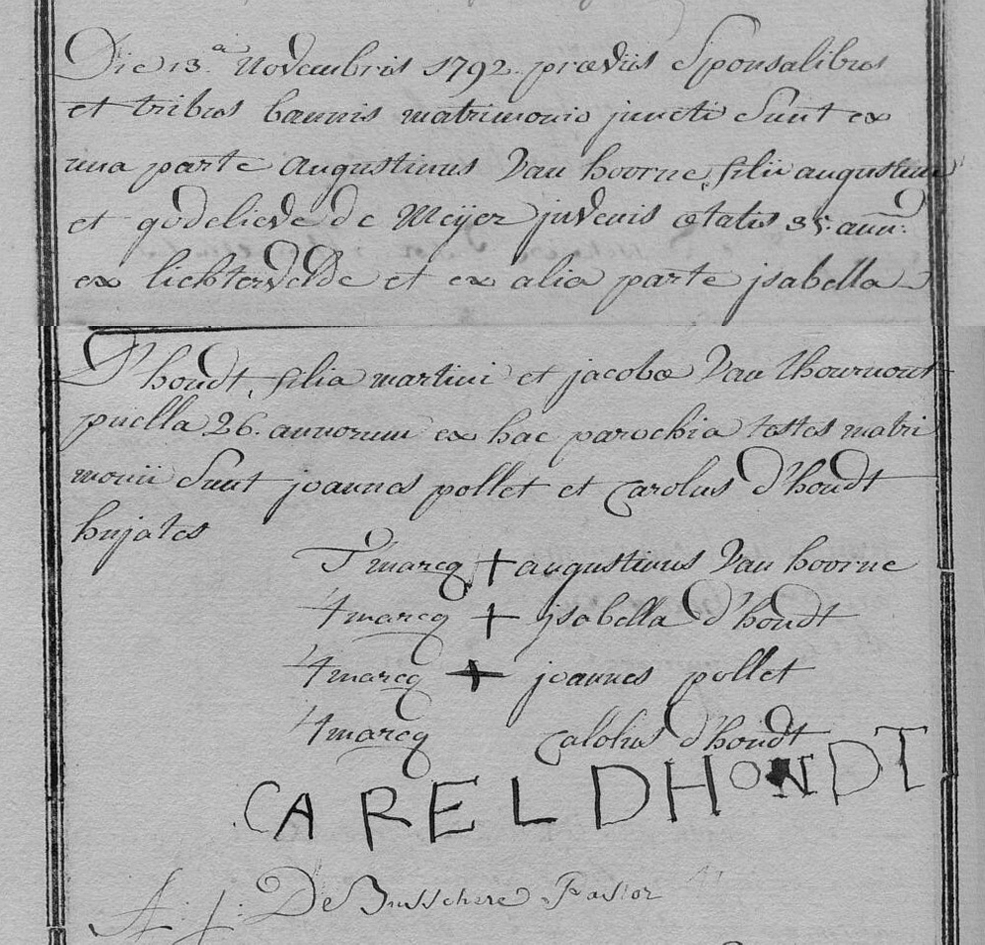 Die 13.a Novembris 1792. præviis Sponsalibus
et tribus bannis matrimonio juncti Sunt ex
una parte Augustinus Van hoorne filii augustini
et godelieve de Meÿer juvenis œtatis 35. ann:
ex lichtervelde et ex alia parte jsabella
D'hondt filia martini et jacobœ Van Thournout
puella 26. annorum ex hac parochia testes matri
monii Sunt joannes pollet et Carolus d'hondt
hujates
T'marcq + augustinus Van hoorne
't marcq + jsabella d'hondt
't marcq + joannes pollet
't marcq Calolus d'hondt
CAREL DHONDT
A: j: De Busschere Pastor